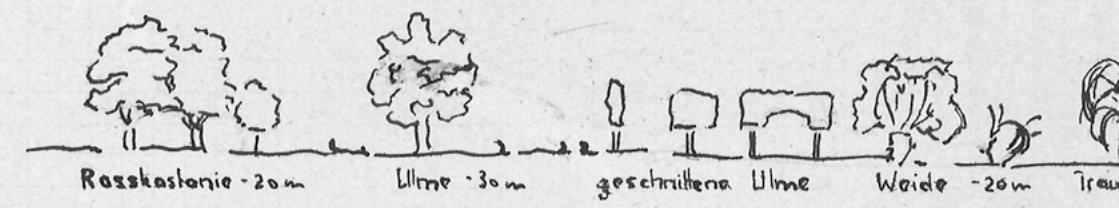 Rosskastanie - 20 m Ulme - 30 m geschnittene Ulme Weide - 20 m